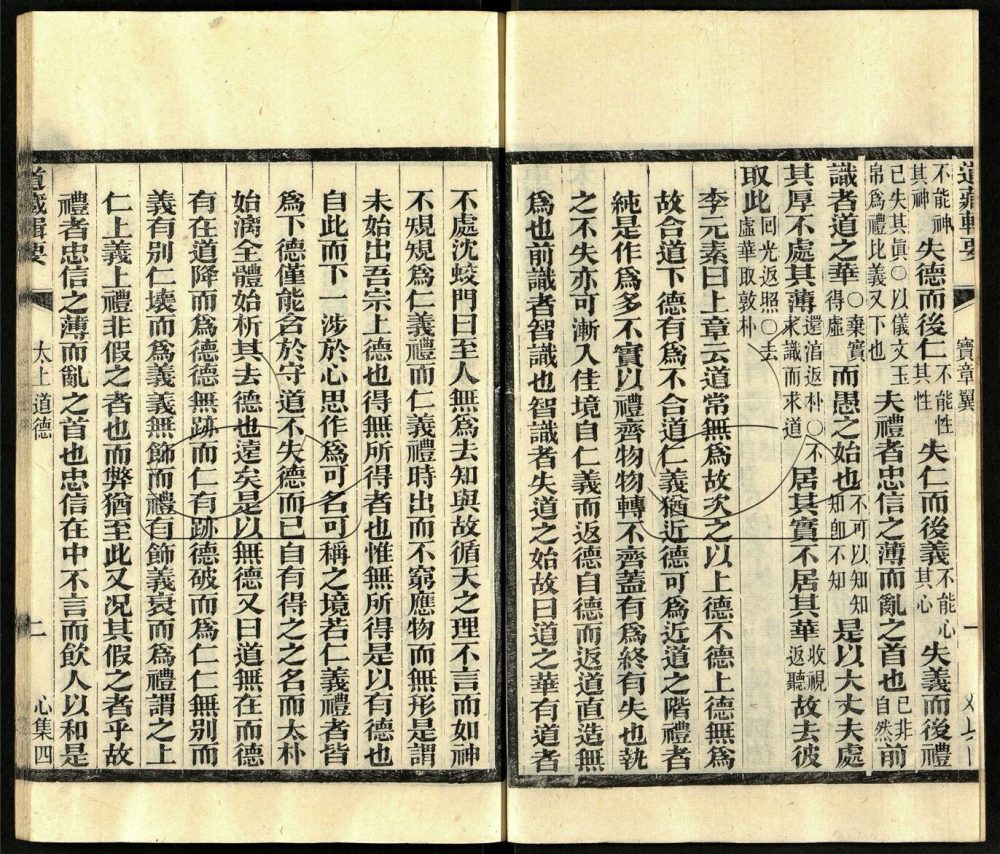 道藏輯要 寶章翼 一
不能神其神失德而後仁不能性其性失仁而後義不能心其心失義而後禮
已失其眞○以儀文玉帛爲禮比義又下也夫禮者忠信之薄而亂之首也已非自然前
識者道之華○棄實得虛而愚之始也不可以知知知卽不知是以大丈夫處
其厚不處其薄還淳返朴○不求識而求道居其實不居其華收視返聽故去彼
取此回光返照○去虛華取敦朴
李元素曰上章云道常無爲故次之以上德不德上德無爲
故合道下德有爲不合道仁義猶近德可爲近道之階禮者
純是作爲多不實以禮齊物物轉不齊蓋有爲終有失也執
之不失亦可漸入佳境自仁義而返德自德而返道直造無
爲也前識者智識也智識者失道之始故曰道之華有道者
不處沈蛟門曰至人無爲去知與故循天之理不言而如神
不規規爲仁義禮而仁義禮時出而不窮應物而無形是謂
未始出吾宗上德也得無所得者也惟無所得是以有德也
自此而下一涉於心思作爲可名可稱之境若仁義禮者皆
爲下德僅能含於守道不失德而已自有得之之名而太朴
始漓全體始析其去德也遠矣是以無德又曰道無在而德
有在道降而爲德德無跡而仁有跡德破而爲仁仁無別而
義有別仁壊而爲義義無飾而禮有飾義衰而爲禮謂之上
仁上義上禮非假之者也而弊猶至此又况其假之者乎故
禮者忠信之薄而亂之首也忠信在中不言而飲人以和是
道藏輯要 太上道德 二 心集四